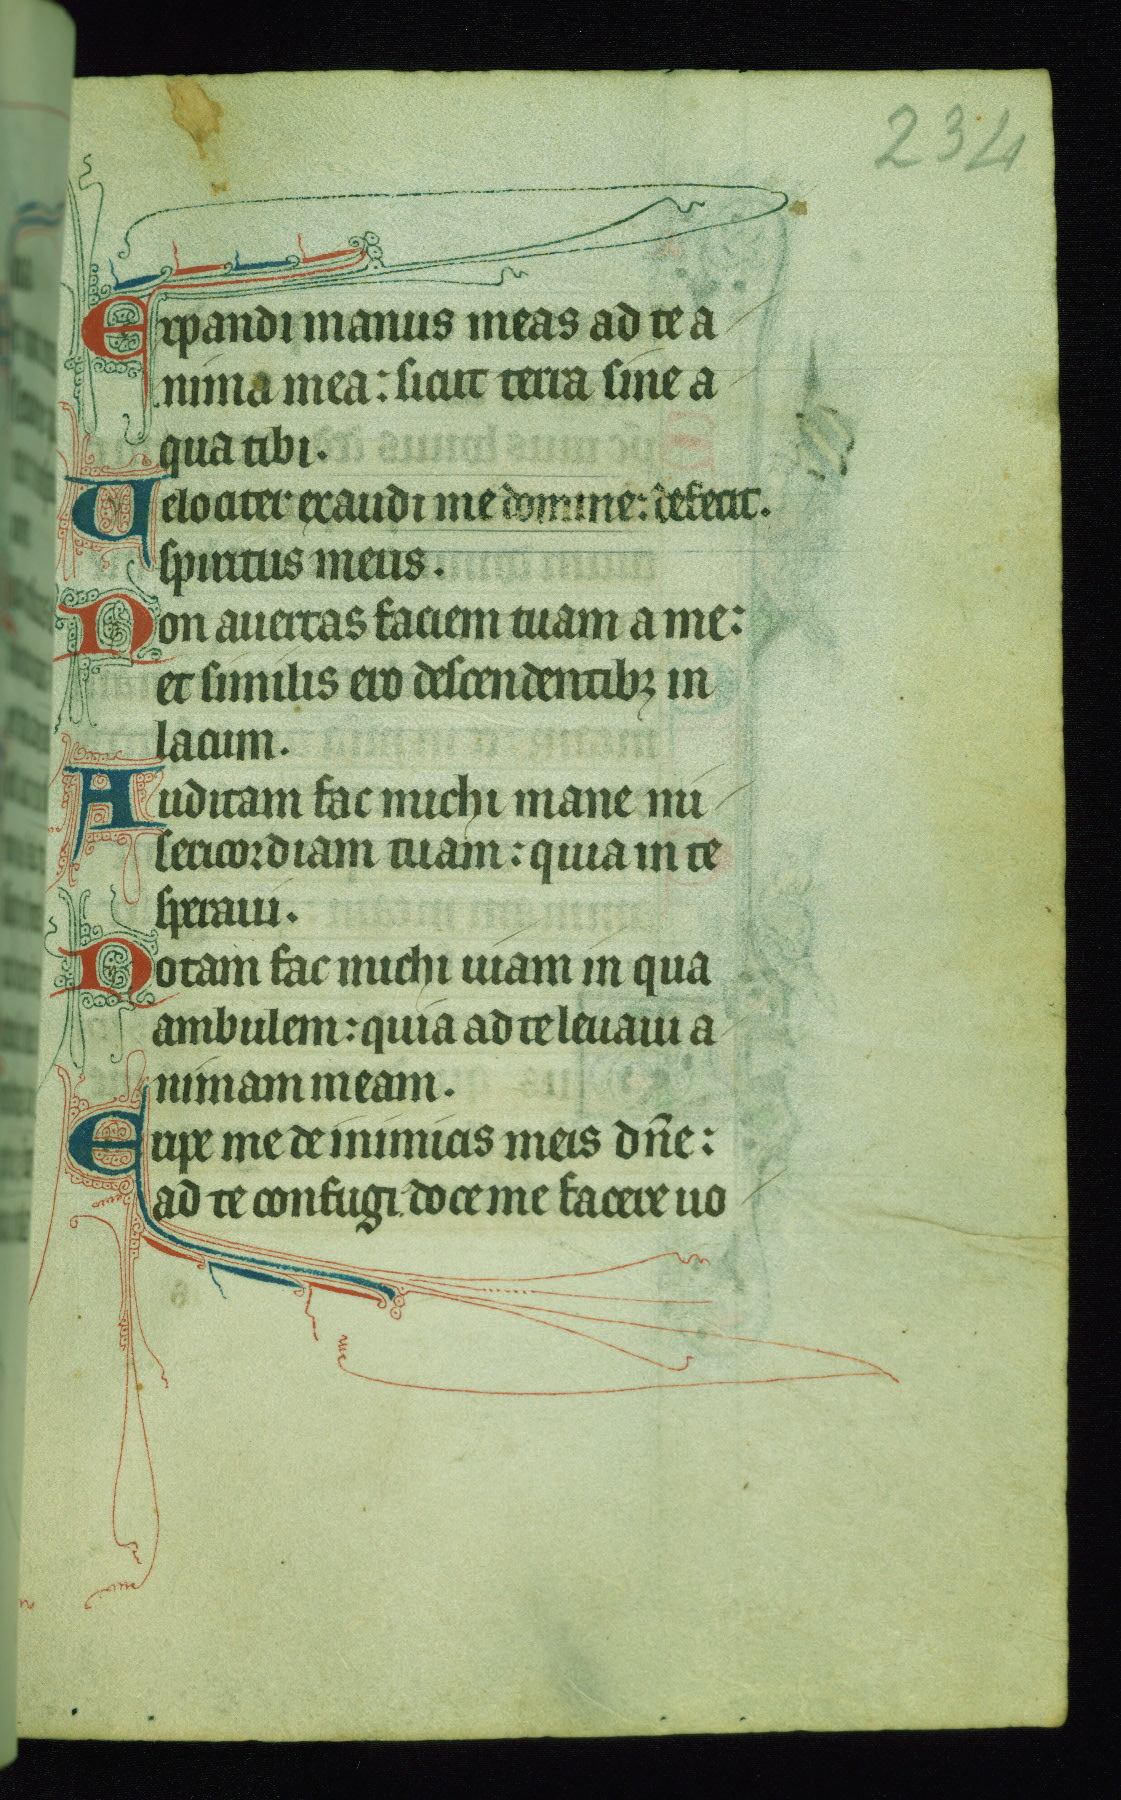 234
Expandi manus meas ad te a
nima mea: sicut terra sine a
qua tibi.
Uelociter exaudi me domine: defecit.
spiritus meus.
Non auertas faciem tuam a me:
et similis ero descendentibꝫ in
lacum.
Auditam fac michi mane mi
sericordiam tuam: quia in te
speraui.
Notam fac michi uiam in qua
ambulem: quia ad te leuaui a
nimam meam.
Eripe me de inimicis meis dn̄e:
ad te confugi doce me facere uo